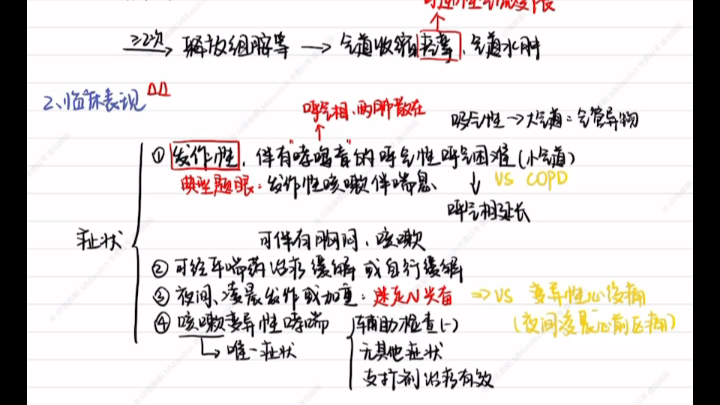 ≥2次 → 释放组胺等 → 气道收缩痉挛、气道水肿
2、临床表现 △△
呼气相、两肺散在
吸气性 → 大气道:气管异物
①发作性,伴有"哮鸣音"的呼气性呼吸困难(小气道)
典型题眼:发作性咳嗽伴喘息、
VS COPD
呼气相延长
可伴有胸闷、咳嗽
症状
②可经平喘药治疗缓解或自行缓解
③夜间、凌晨发作或加重:迷走N兴奋 => VS 变异性心绞痛
(夜间凌晨心前区痛)
④咳嗽变异性哮喘
辅助检查(-)
唯一症状
无其他症状
支扩剂治疗有效